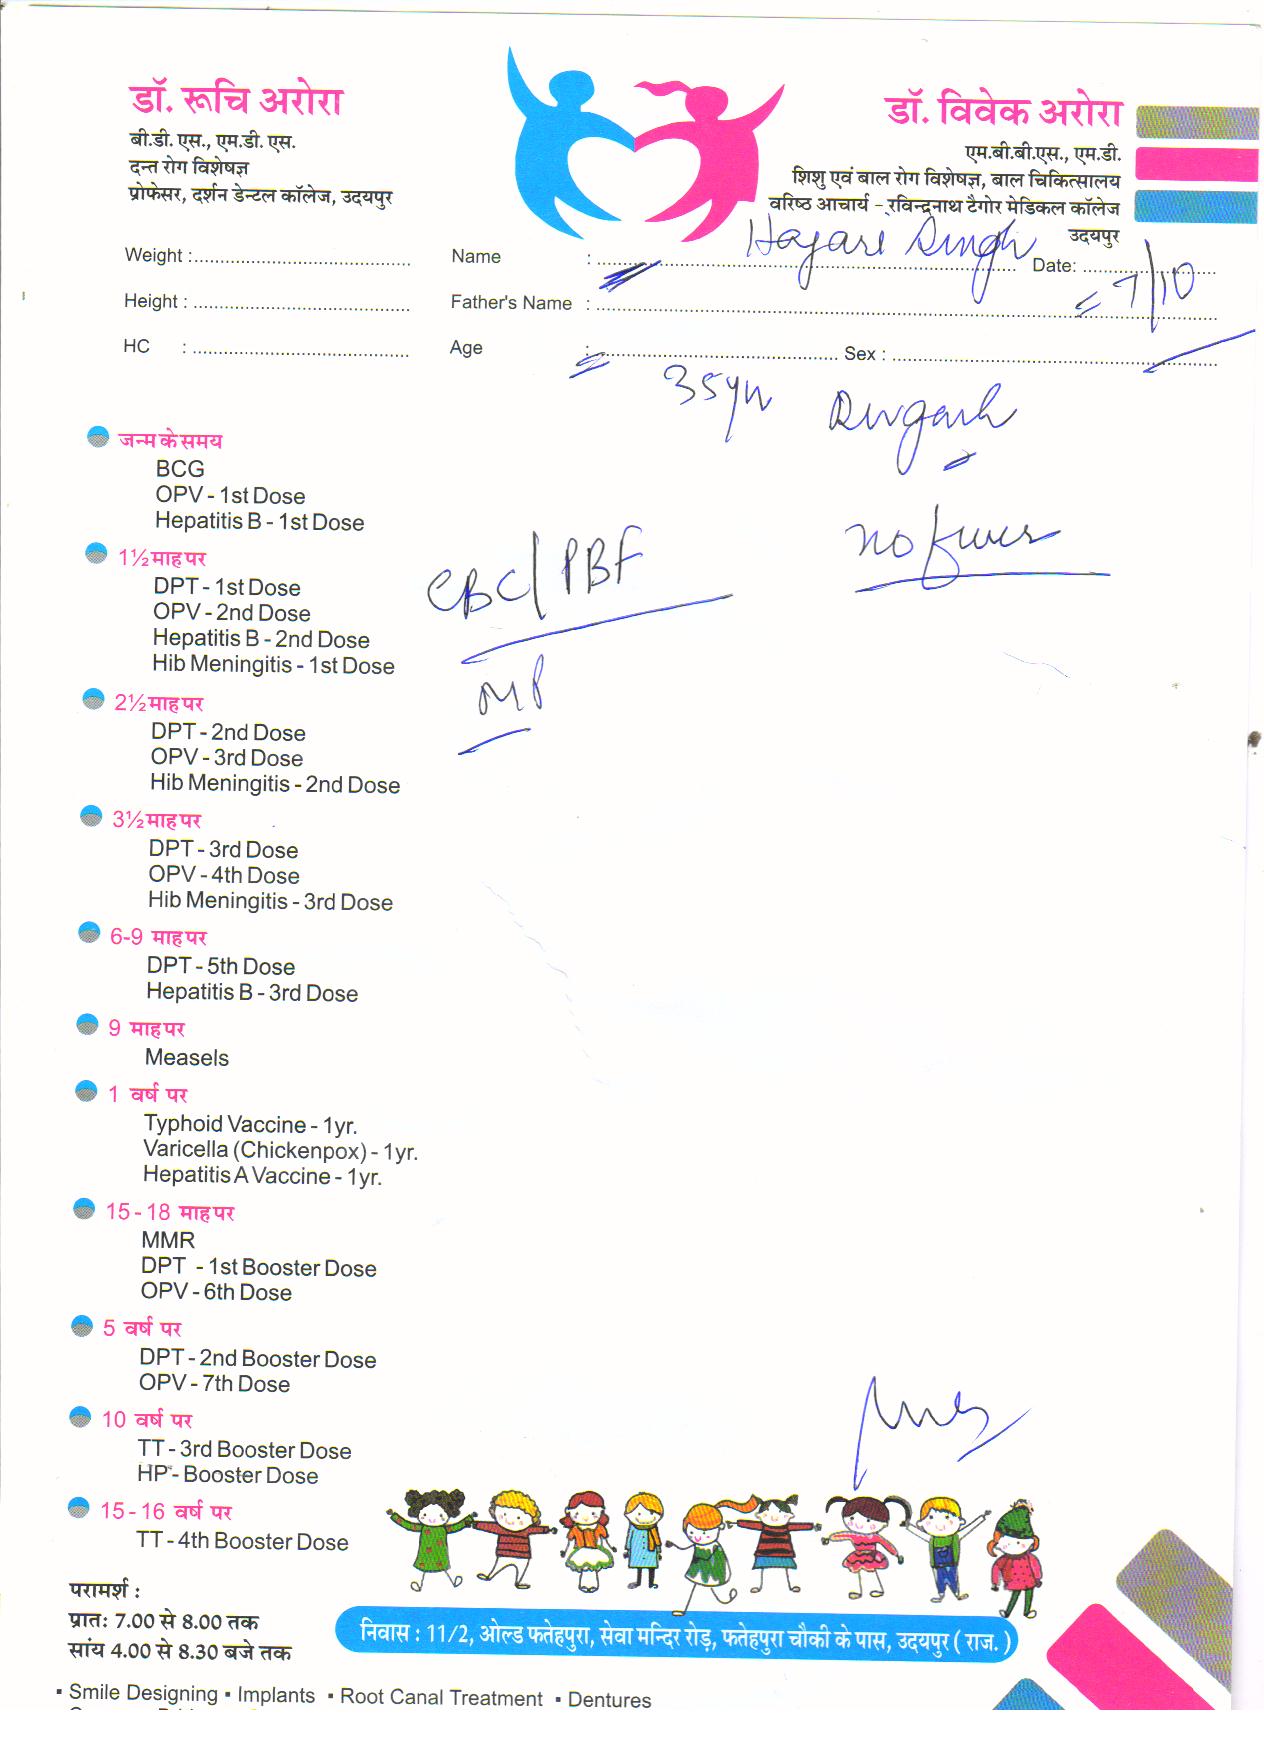 डॉ. रूचि अरोरा
बी.डी. एस., एम.डी. एस.
दन्त रोग विशेषज्ञ
प्रोफेसर, दर्शन डेन्टल कॉलेज, उदयपुर
डॉ. विवेक अरोरा
एम.बी.बी.एस., एम.डी.
शिशु एवं बाल रोग विशेषज्ञ, बाल चिकित्सालय
वरिष्ठ आचार्य - रविन्द्रनाथ टैगोर मेडिकल कॉलेज
उदयपुर
Weight : Name : Hajari Singh Date: 7/10
Height : Father's Name :
HC : Age : Sex :
35yr
no fever
CBC/PBF
MP
जन्म के समय
BCG
OPV - 1st Dose
Hepatitis B - 1st Dose
1½ माह पर
DPT - 1st Dose
OPV - 2nd Dose
Hepatitis B - 2nd Dose
Hib Meningitis - 1st Dose
2½ माह पर
DPT - 2nd Dose
OPV - 3rd Dose
Hib Meningitis - 2nd Dose
3½ माह पर
DPT - 3rd Dose
OPV - 4th Dose
Hib Meningitis - 3rd Dose
6-9 माह पर
DPT - 5th Dose
Hepatitis B - 3rd Dose
9 माह पर
Measels
1 वर्ष पर
Typhoid Vaccine - 1yr.
Varicella (Chickenpox) - 1yr.
Hepatitis A Vaccine - 1yr.
15-18 माह पर
MMR
DPT - 1st Booster Dose
OPV - 6th Dose
5 वर्ष पर
DPT - 2nd Booster Dose
OPV - 7th Dose
10 वर्ष पर
TT - 3rd Booster Dose
HP - Booster Dose
15-16 वर्ष पर
TT - 4th Booster Dose
परामर्श :
प्रातः 7.00 से 8.00 तक
सांय 4.00 से 8.30 बजे तक
निवास : 11/2, ओल्ड फतेहपुरा, सेवा मन्दिर रोड़, फतेहपुरा चौकी के पास, उदयपुर ( राज. )
▪ Smile Designing ▪ Implants ▪ Root Canal Treatment ▪ Dentures